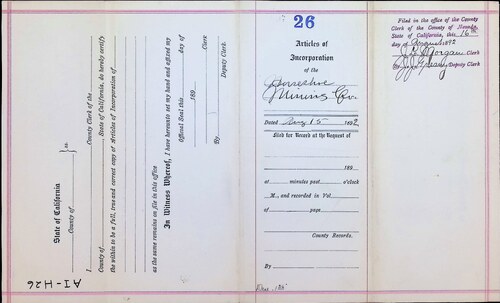 State of California
County of
ss:
I
County Clerk of the
County of State of California, do hereby certify
the within to be a full, true and correct copy of Articles of Incorporation of
as the same remains on file in this office
In Witness Whereof, I have hereunto set my hand and affixed my
Official Seal this day of
189
Clerk
By
Deputy Clerk.
AI-H26
26
Articles of
Incorporation
of the
Mining Co.
Dated Aug 15 189
Filed for Record at the Request of
189
at minutes past o'clock
M., and recorded in Vol.
of page
County Records.
By
Filed in the office of the County
Clerk of the County of
State of California, this 16th
day of 1892
Clerk
By Deputy Clerk